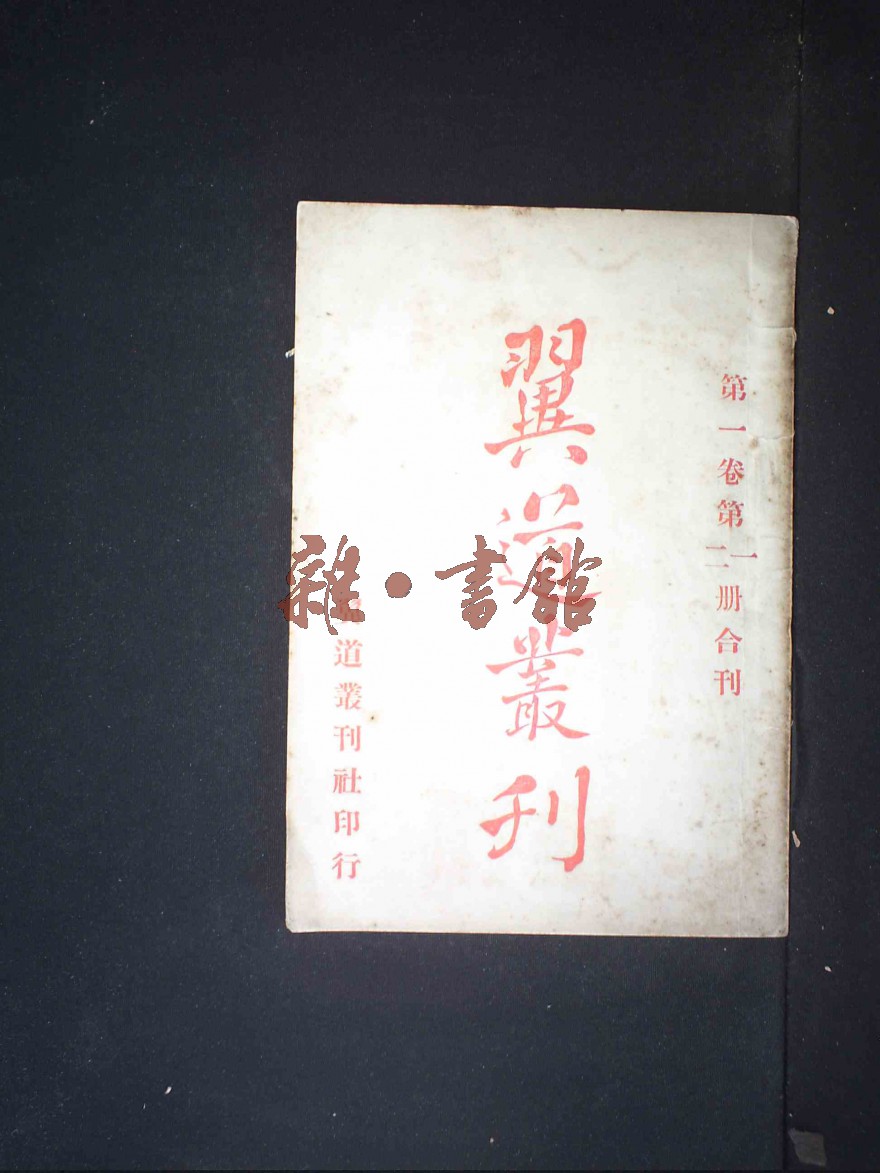 第一卷第一二册合刊
翼道叢刊
翼道叢刊社印行
雜·書館